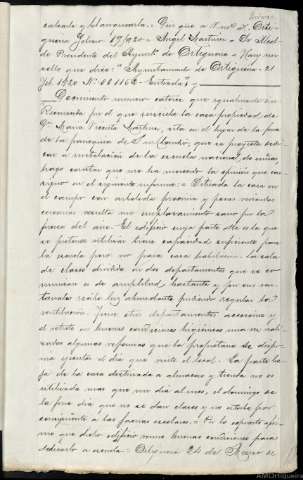 calcule y blanquearla. Dios que a Vmd. Orti-
gueira Febrero 19/920 = Angel Martinez = Sr Alcal-
de Presidente del Ayunto de Ortigueira = Hay un
sello que dice: "Ayuntamiento de Ortigueira - 21
Feb. 1920 Nº 001162 - Entrada" y
Documento número catorce que igualmente se
por el que la casa propiedad de
Dª Maria Martinez, sita en el lugar de la feria
de la parroquia de San Claudio, que se proyecta dedi-
car a instalación de la escuela nacional de niños,
hago constar que me ha merecido la opinión que con-
signo en el siguiente informe: = Situada la casa en
el campo con arbolado proximo y pocas viviendas
cercanas resulta un emplazamiento sano para la
época del año. El edificio cuya parte de él es la que
se pretende utilizar tiene capacidad suficiente para
la escuela pero no para casa habitación. La sala
de clases dividida en dos departamentos que se co-
munican es de amplitud bastante y por sus ven-
tanales recibe luz abundante pudiendo regular la
ventilación. Tiene otro departamento accesorio y
el retrete en buenas condiciones higiénicas una vez reali-
zadas algunas reformas que la propietaria se dispo-
ne ejecutar el dia que visite el local. La parte ba-
ja de la casa destinada a almacen y tienda no es
utilizada mas que un dia al mes, el domingo de
la feria dia que no se dan clases y no afecta por
consiguiente a las faenas escolares. = Por lo expuesto afir-
mo que dicho edificio reune buenas condiciones para
dedicarlo a escuela = Ortigueira 24 de Mayo de
AMOrtigueira